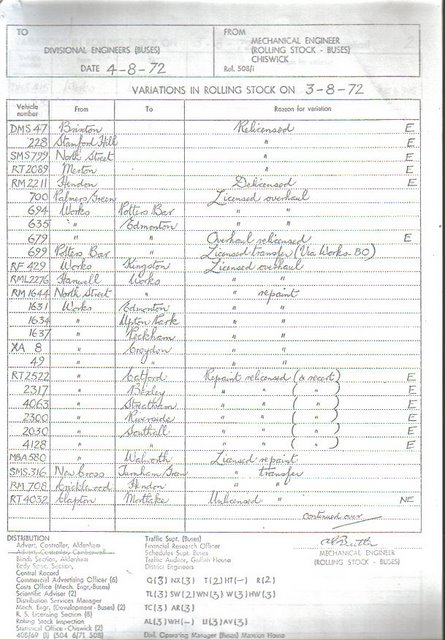 TO
FROM
DIVISIONAL ENGINEERS (BUSES)
MECHANICAL ENGINEER
(ROLLING STOCK - BUSES)
CHISWICK
DATE 4-8-72
Ref. 508/1
VARIATIONS IN ROLLING STOCK ON 3-8-72
Vehicle number From To Reason for variation
DMS 47 Brixton Relicensed E
228 Stamford Hill " E
SMS 799 North Street " E
RT 2089 Merton " E
RM 2211 Hendon Delicensed E
700 Palmers Green Licensed overhaul
694 Works Potters Bar " "
635 " Edmonton " "
679 " " Overhaul relicensed E
699 Potters Bar " Licensed transfer (Via Works. BO)
RF 429 Works Kingston Licensed overhaul
RML 2276 Hanwell Works " "
RM 1644 North Street " " repaint
1631 Works Edmonton " "
1634 " Upton Park " "
1637 " Peckham " "
XA 8 " Croydon " "
49 " " " "
RT 2522 " Catford Repaint relicensed (& recert) E
2317 " Bexley " " ( " ) E
4063 " Streatham " " ( " ) E
2300 " Riverside " " ( " ) E
2030 " Southall " " ( " ) E
4128 " " " " ( " ) E
MBA 580 " Walworth Licensed repaint
SMS 316 New Cross Turnham Green " transfer
RM 708 Cricklewood Hendon " "
RT 4032 Clapton Mortlake Unlicensed " NE
continued over
DISTRIBUTION
Advert. Controller, Aldenham
Central Record
Commercial Advertising Officer (6)
Costs Office (Mech. Engr.-Buses)
Scientific Adviser (2)
Distribution Services Manager
Mech. Engr. (Development - Buses) (2)
R. S. Licensing Section (6)
Rolling Stock Inspection
Statistical Office - Chiswick (2)
Traffic Supt. (Buses)
Financial Research Officer
Schedules Supt. Buses
District Engineers
MECHANICAL ENGINEER
(ROLLING STOCK - BUSES)
Q(3) NX(3) T(2) HT(-) R(2)
TL(3) SW(2) WN(3) W(3) HW(3)
TC(3) AR(3)
AL(3) WH(-) U(3) AV(3)